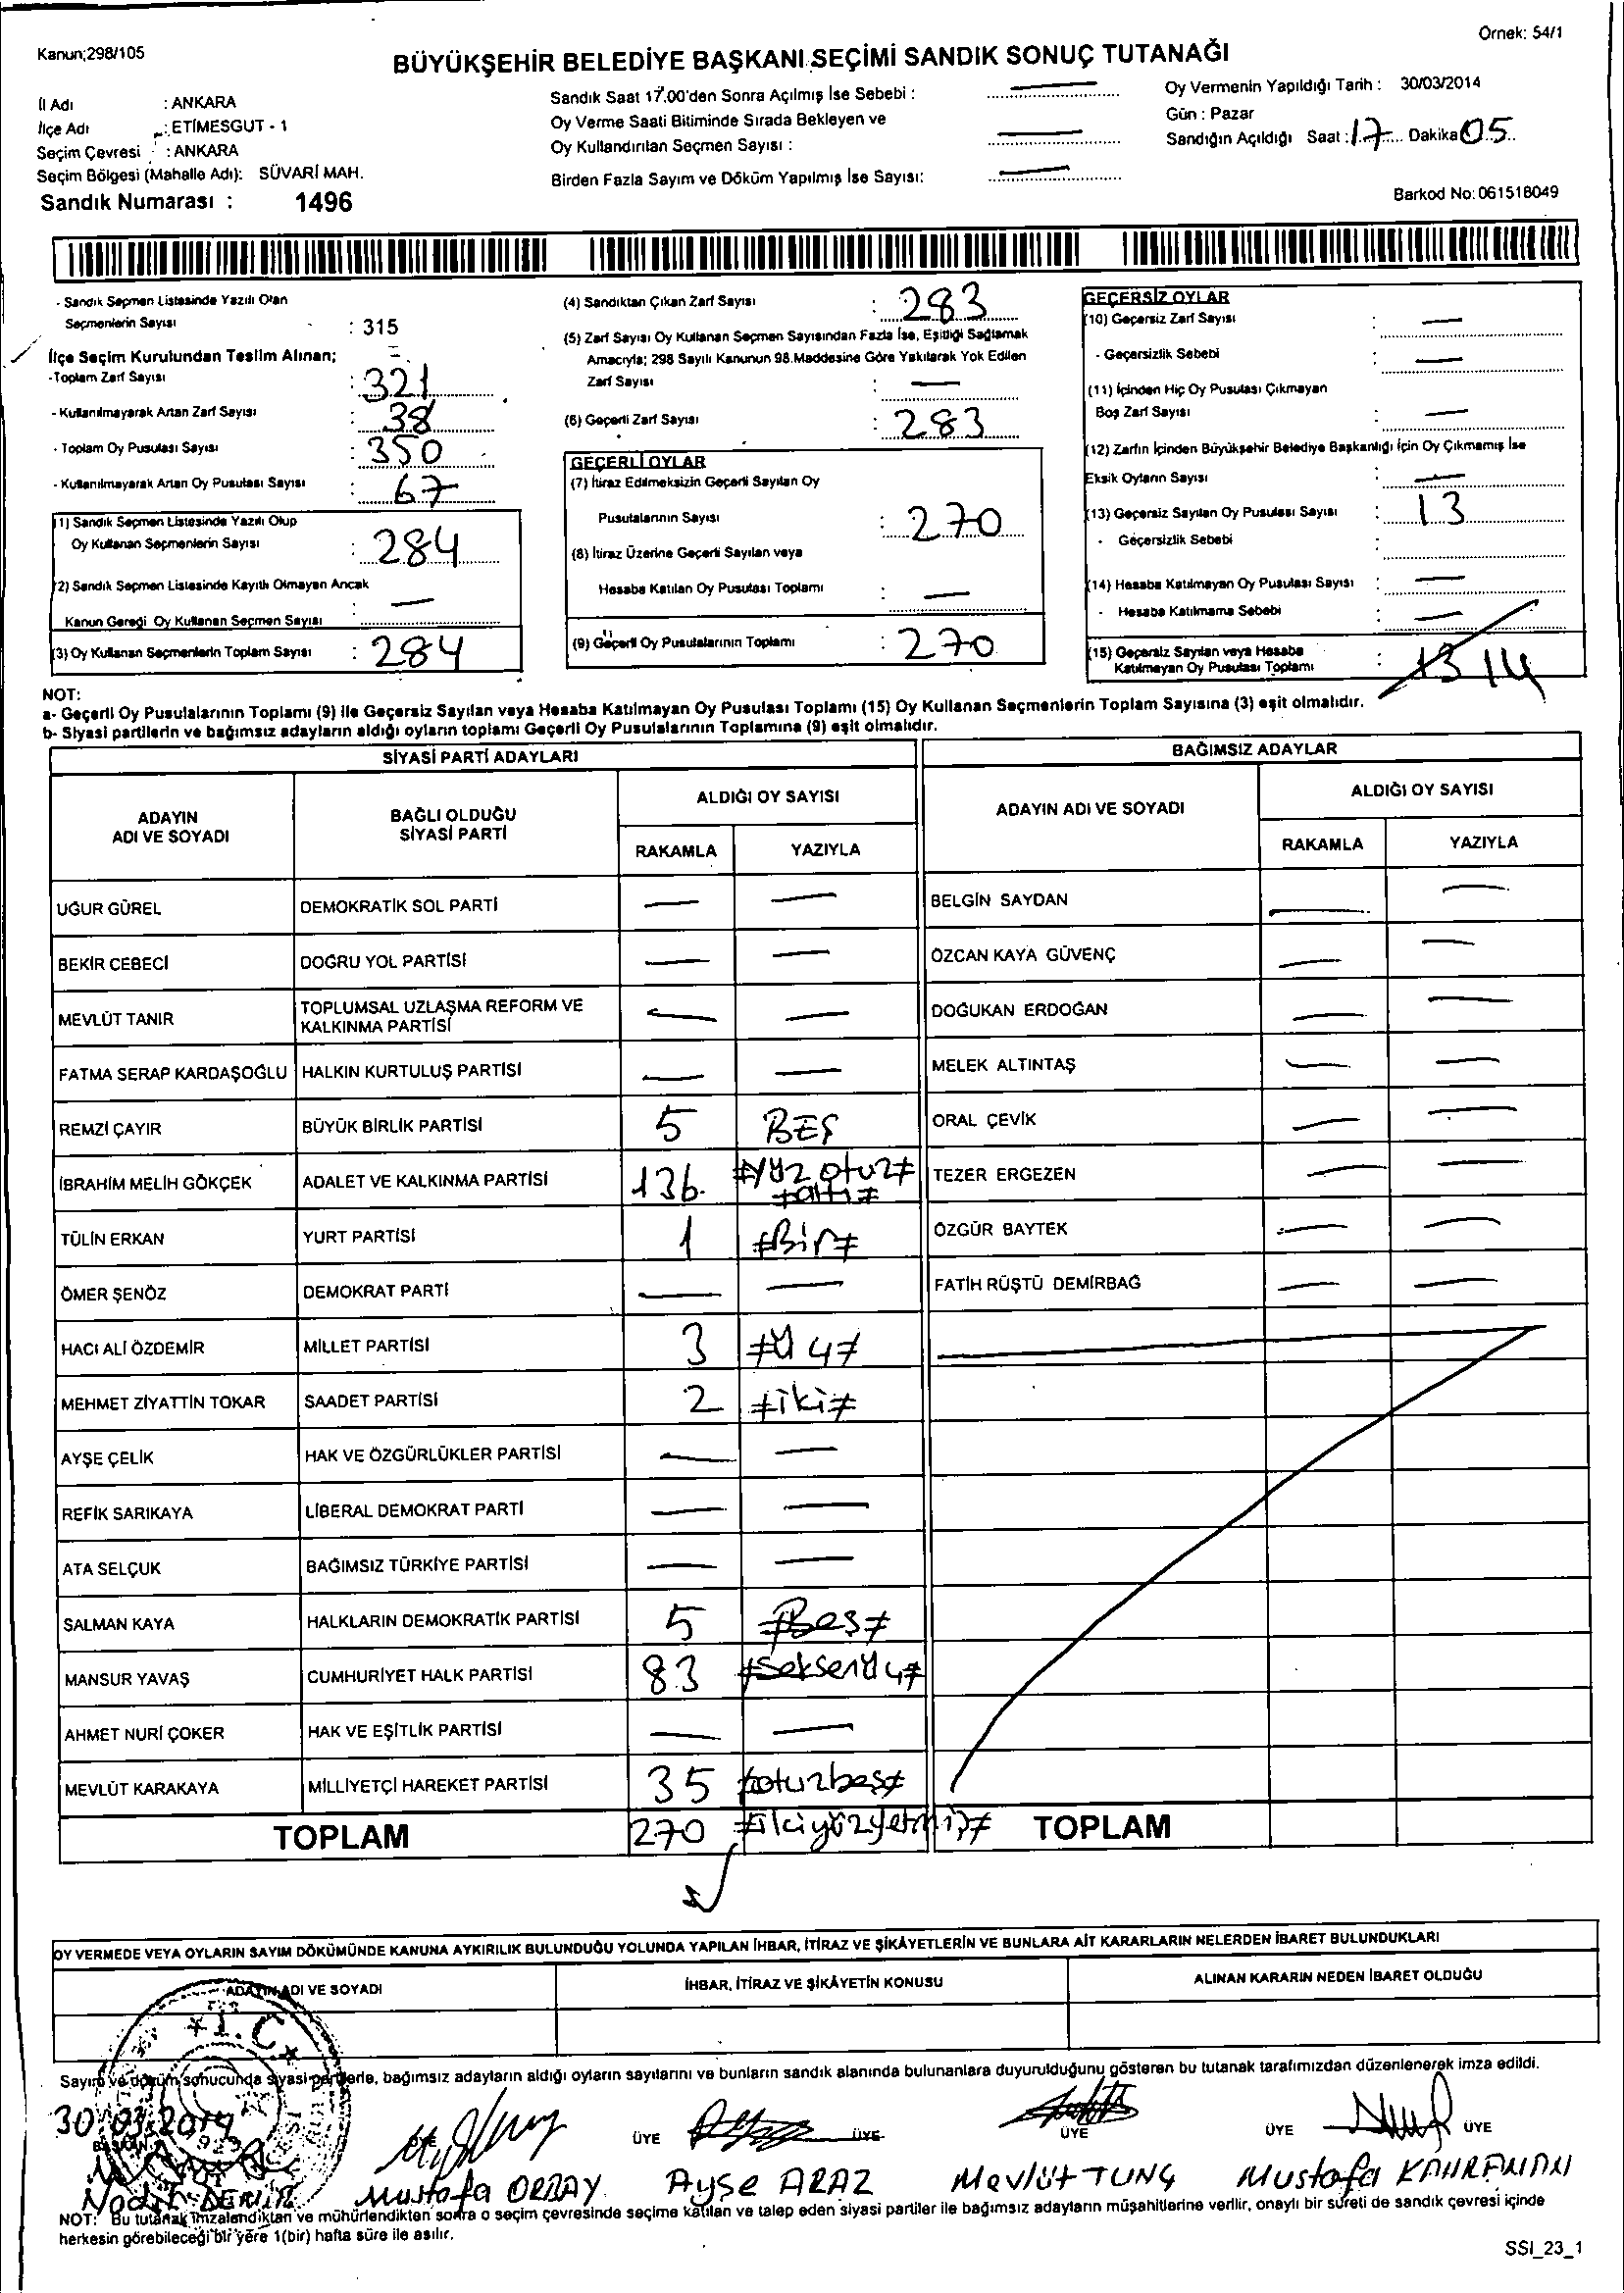 Kanun;298/105
Örnek: 54/1
BÜYÜKŞEHİR BELEDİYE BAŞKANI SEÇİMİ SANDIK SONUÇ TUTANAĞI
İl Adı : ANKARA
İlçe Adı : ETİMESGUT - 1
Seçim Çevresi : ANKARA
Seçim Bölgesi (Mahalle Adı): SÜVARİ MAH.
Sandık Numarası : 1496
Sandık Saat 17.00'den Sonra Açılmış İse Sebebi : —
Oy Verme Saati Bitiminde Sırada Bekleyen ve
Oy Kullandırılan Seçmen Sayısı : —
Birden Fazla Sayım ve Döküm Yapılmış İse Sayısı: —
Oy Vermenin Yapıldığı Tarih : 30/03/2014
Gün : Pazar
Sandığın Açıldığı Saat : 17 Dakika 05
Barkod No: 061518049
- Sandık Seçmen Listesinde Yazılı Olan
Seçmenlerin Sayısı : 315
İlçe Seçim Kurulundan Teslim Alınan;
-Toplam Zarf Sayısı : 321
- Kullanılmayarak Artan Zarf Sayısı : 38
- Toplam Oy Pusulası Sayısı : 350
- Kullanılmayarak Artan Oy Pusulası Sayısı : 67
(1) Sandık Seçmen Listesinde Yazılı Olup
Oy Kullanan Seçmenlerin Sayısı : 284
(2) Sandık Seçmen Listesinde Kayıtlı Olmayan Ancak
Kanun Gereği Oy Kullanan Seçmen Sayısı : —
(3) Oy Kullanan Seçmenlerin Toplam Sayısı : 284
(4) Sandıktan Çıkan Zarf Sayısı : 283
(5) Zarf Sayısı Oy Kullanan Seçmen Sayısından Fazla İse, Eşitliği Sağlamak
Amacıyla; 298 Sayılı Kanunun 98.Maddesine Göre Yakılarak Yok Edilen
Zarf Sayısı : —
(6) Geçerli Zarf Sayısı : 283
GEÇERLİ OYLAR
(7) İtiraz Edilmeksizin Geçerli Sayılan Oy
Pusulalarının Sayısı : 270
(8) İtiraz Üzerine Geçerli Sayılan veya
Hesaba Katılan Oy Pusulası Toplamı : —
(9) Geçerli Oy Pusulalarının Toplamı : 270
GEÇERSİZ OYLAR
(10) Geçersiz Zarf Sayısı : —
- Geçersizlik Sebebi : —
(11) İçinden Hiç Oy Pusulası Çıkmayan
Boş Zarf Sayısı : —
(12) Zarfın İçinden Büyükşehir Belediye Başkanlığı İçin Oy Çıkmamış İse
Eksik Oyların Sayısı : —
(13) Geçersiz Sayılan Oy Pusulası Sayısı : 13
- Geçersizlik Sebebi :
(14) Hesaba Katılmayan Oy Pusulası Sayısı : —
- Hesaba Katılmama Sebebi : —
(15) Geçersiz Sayılan veya Hesaba
Katılmayan Oy Pusulası Toplamı : 13 14
NOT:
a- Geçerli Oy Pusulalarının Toplamı (9) ile Geçersiz Sayılan veya Hesaba Katılmayan Oy Pusulası Toplamı (15) Oy Kullanan Seçmenlerin Toplam Sayısına (3) eşit olmalıdır.
b- Siyasi partilerin ve bağımsız adayların aldığı oyların toplamı Geçerli Oy Pusulalarının Toplamına (9) eşit olmalıdır.
SİYASİ PARTİ ADAYLARI
ADAYIN ADI VE SOYADI
BAĞLI OLDUĞU SİYASİ PARTİ
ALDIĞI OY SAYISI
RAKAMLA YAZIYLA
UĞUR GÜREL DEMOKRATİK SOL PARTİ — —
BEKİR CEBECİ DOĞRU YOL PARTİSİ — —
MEVLÜT TANIR TOPLUMSAL UZLAŞMA REFORM VE KALKINMA PARTİSİ — —
FATMA SERAP KARDAŞOĞLU HALKIN KURTULUŞ PARTİSİ — —
REMZİ ÇAYIR BÜYÜK BİRLİK PARTİSİ 5 BEŞ
İBRAHİM MELİH GÖKÇEK ADALET VE KALKINMA PARTİSİ 136 #Yüz otuz# #altı#
TÜLİN ERKAN YURT PARTİSİ 1 #Bir#
ÖMER ŞENÖZ DEMOKRAT PARTİ — —
HACI ALİ ÖZDEMİR MİLLET PARTİSİ 3 #Üç#
MEHMET ZİYATTİN TOKAR SAADET PARTİSİ 2 #iki#
AYŞE ÇELİK HAK VE ÖZGÜRLÜKLER PARTİSİ — —
REFİK SARIKAYA LİBERAL DEMOKRAT PARTİ — —
ATA SELÇUK BAĞIMSIZ TÜRKİYE PARTİSİ — —
SALMAN KAYA HALKLARIN DEMOKRATİK PARTİSİ 5 #Beş#
MANSUR YAVAŞ CUMHURİYET HALK PARTİSİ 83 #Seksenüç#
AHMET NURİ ÇOKER HAK VE EŞİTLİK PARTİSİ — —
MEVLÜT KARAKAYA MİLLİYETÇİ HAREKET PARTİSİ 35 #otuzbeş#
TOPLAM 270 #ikiyüzyetmiş#
BAĞIMSIZ ADAYLAR
ADAYIN ADI VE SOYADI
ALDIĞI OY SAYISI
RAKAMLA YAZIYLA
BELGİN SAYDAN — —
ÖZCAN KAYA GÜVENÇ — —
DOĞUKAN ERDOĞAN — —
MELEK ALTINTAŞ — —
ORAL ÇEVİK — —
TEZER ERGEZEN — —
ÖZGÜR BAYTEK — —
FATİH RÜŞTÜ DEMİRBAĞ — —
TOPLAM
OY VERMEDE VEYA OYLARIN SAYIM DÖKÜMÜNDE KANUNA AYKIRILIK BULUNDUĞU YOLUNDA YAPILAN İHBAR, İTİRAZ VE ŞİKÂYETLERİN VE BUNLARA AİT KARARLARIN NELERDEN İBARET BULUNDUKLARI
ADAYIN ADI VE SOYADI
İHBAR, İTİRAZ VE ŞİKÂYETİN KONUSU
ALINAN KARARIN NEDEN İBARET OLDUĞU
T.C.
Sayım ve döküm sonucunda siyasi partilerle, bağımsız adayların aldığı oyların sayılarını ve bunların sandık alanında bulunanlara duyurulduğunu gösteren bu tutanak tarafımızdan düzenlenerek imza edildi.
30.03.2014
BAŞKAN ÜYE ÜYE ÜYE ÜYE ÜYE
Mustafa ORBAY Ayşe ARAZ Mevlüt TUNÇ Mustafa KAHRAMAN
NOT: Bu tutanak imzalandıktan ve mühürlendikten sonra o seçim çevresinde seçime katılan ve talep eden siyasi partiler ile bağımsız adayların müşahitlerine verilir, onaylı bir sureti de sandık çevresi içinde
herkesin görebileceği bir yere 1(bir) hafta süre ile asılır.
SSI_23_1